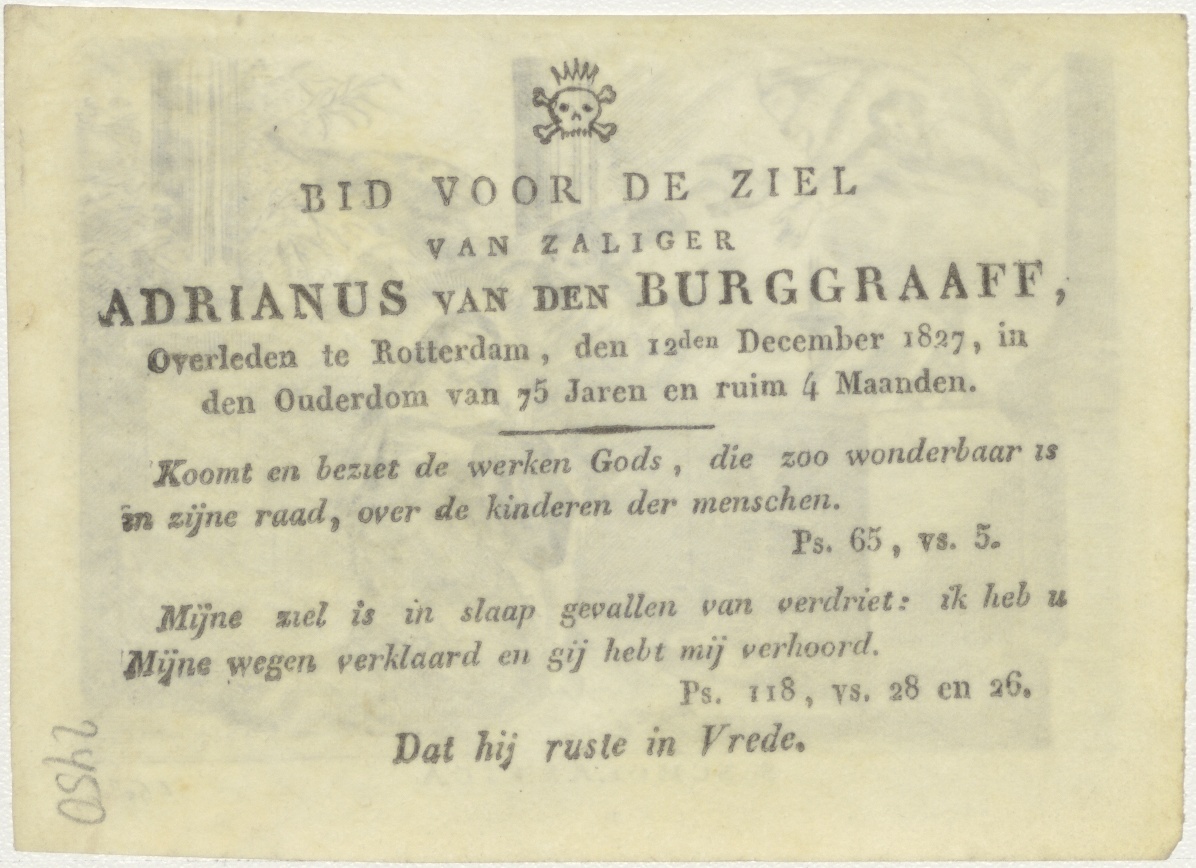 BID VOOR DE ZIEL
VAN ZALIGER
ADRIANUS VAN DEN BURGGRAAFF,
Overleden te Rotterdam, den 12den December 1827, in
den Ouderdom van 75 Jaren en ruim 4 Maanden.
Koomt en beziet de werken Gods, die zoo wonderbaar is
in zijne raad, over de kinderen der menschen.
Ps. 65, vs. 5.
Mijne ziel is in slaap gevallen van verdriet: ik heb u
Mijne wegen verklaard en gij hebt mij verhoord.
Ps. 118, vs. 28 en 26.
Dat hij ruste in Vrede.
2450